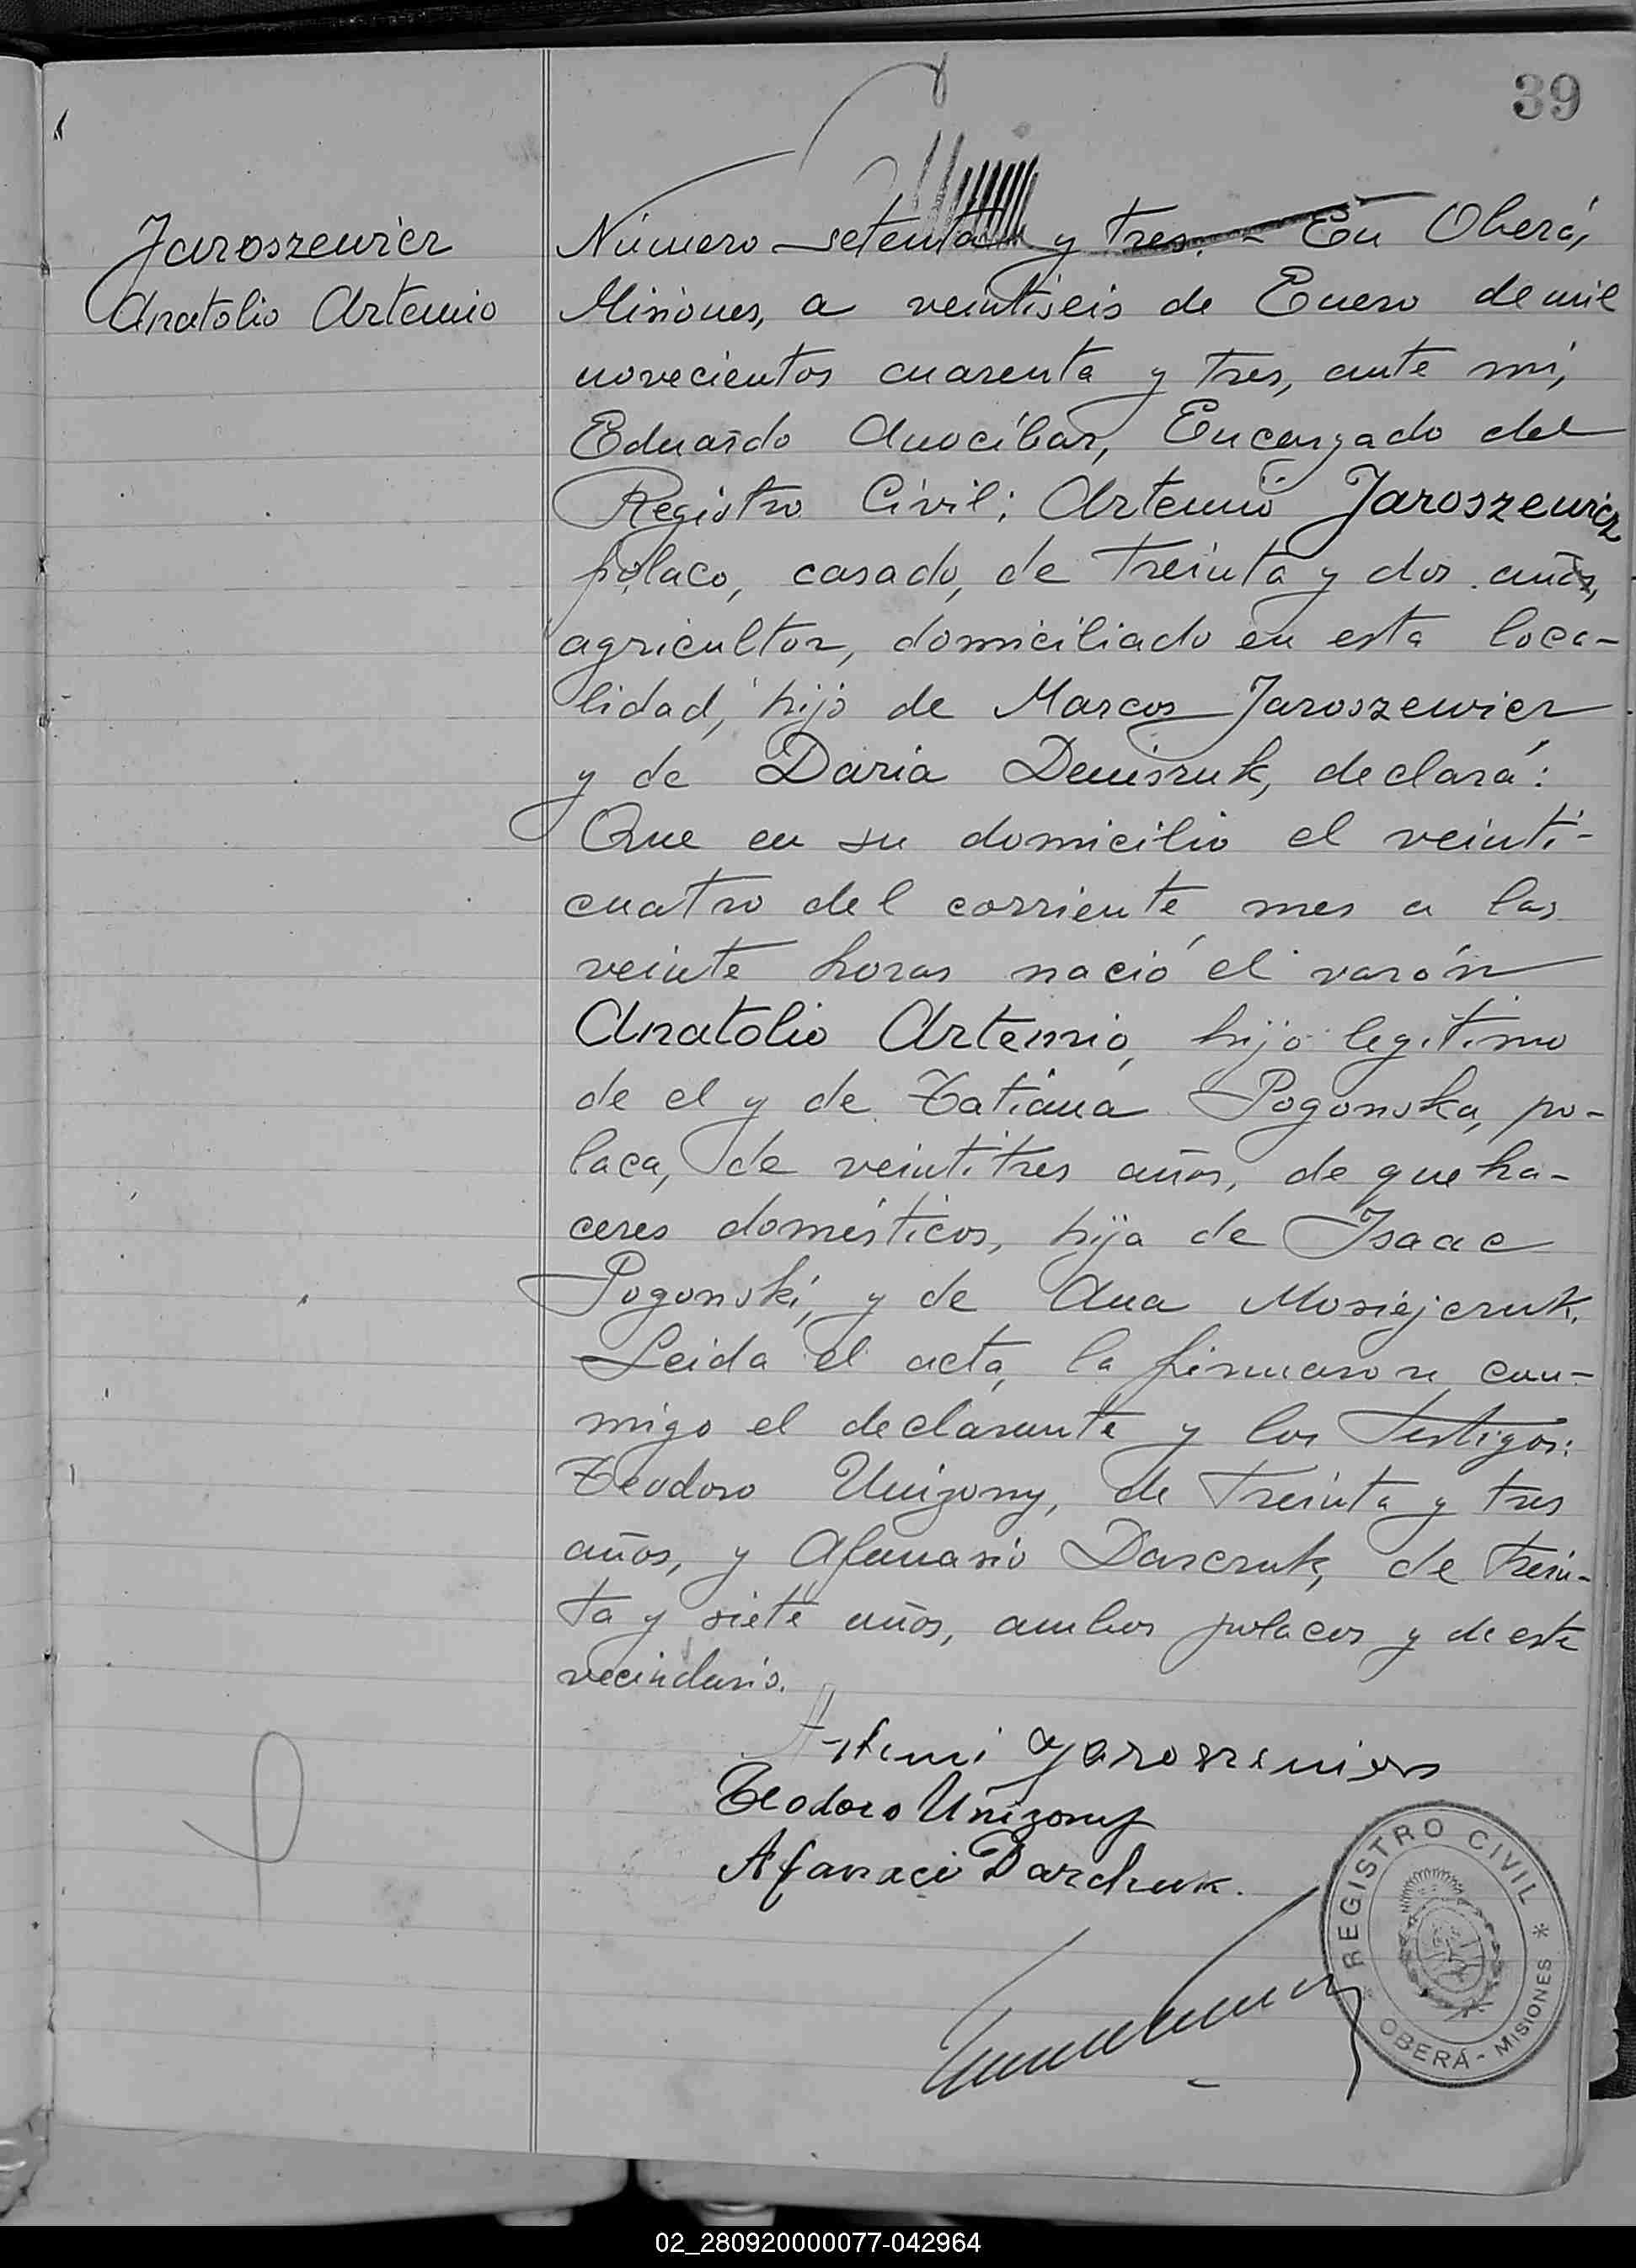 39
Jaroszewicz
Anatolio Artemio
Número setenta y tres.- En Oberá,
Misiones, a veintiseis de Enero de mil
novecientos cuarenta y tres, ante mí,
Eduardo Anocíbar, Encargado del
Registro Civil; Artemio Jaroszewicz
polaco, casado, de treinta y dos años,
agricultor, domiciliado en esta loca-
lidad, hijo de Marcos Jaroszewicz
y de Daria Deniszuk, declara:
Que en su domicilio el veinti-
cuatro del corriente mes a las
veinte horas nació el varón
Anatolio Artemio, hijo legítimo
de el y de Tatiana Pogonska, po-
laca, de veintitres años, de queha-
ceres domésticos, hija de Isaac
Pogonski, y de Ana Mosiejczuk.
Leida el acta, la firmaron con-
migo el declarante y los testigos:
Teodoro Unizony, de treinta y tres
años, y Afanasio Darczuk, de trein-
ta y siete años, ambos polacos y de este
vecindario.
Artemi Jaroszewicz
Teodoro Unizony
Afanaci Darchuk.
REGISTRO CIVIL *
OBERÁ - MISIONES
02_280920000077-042964